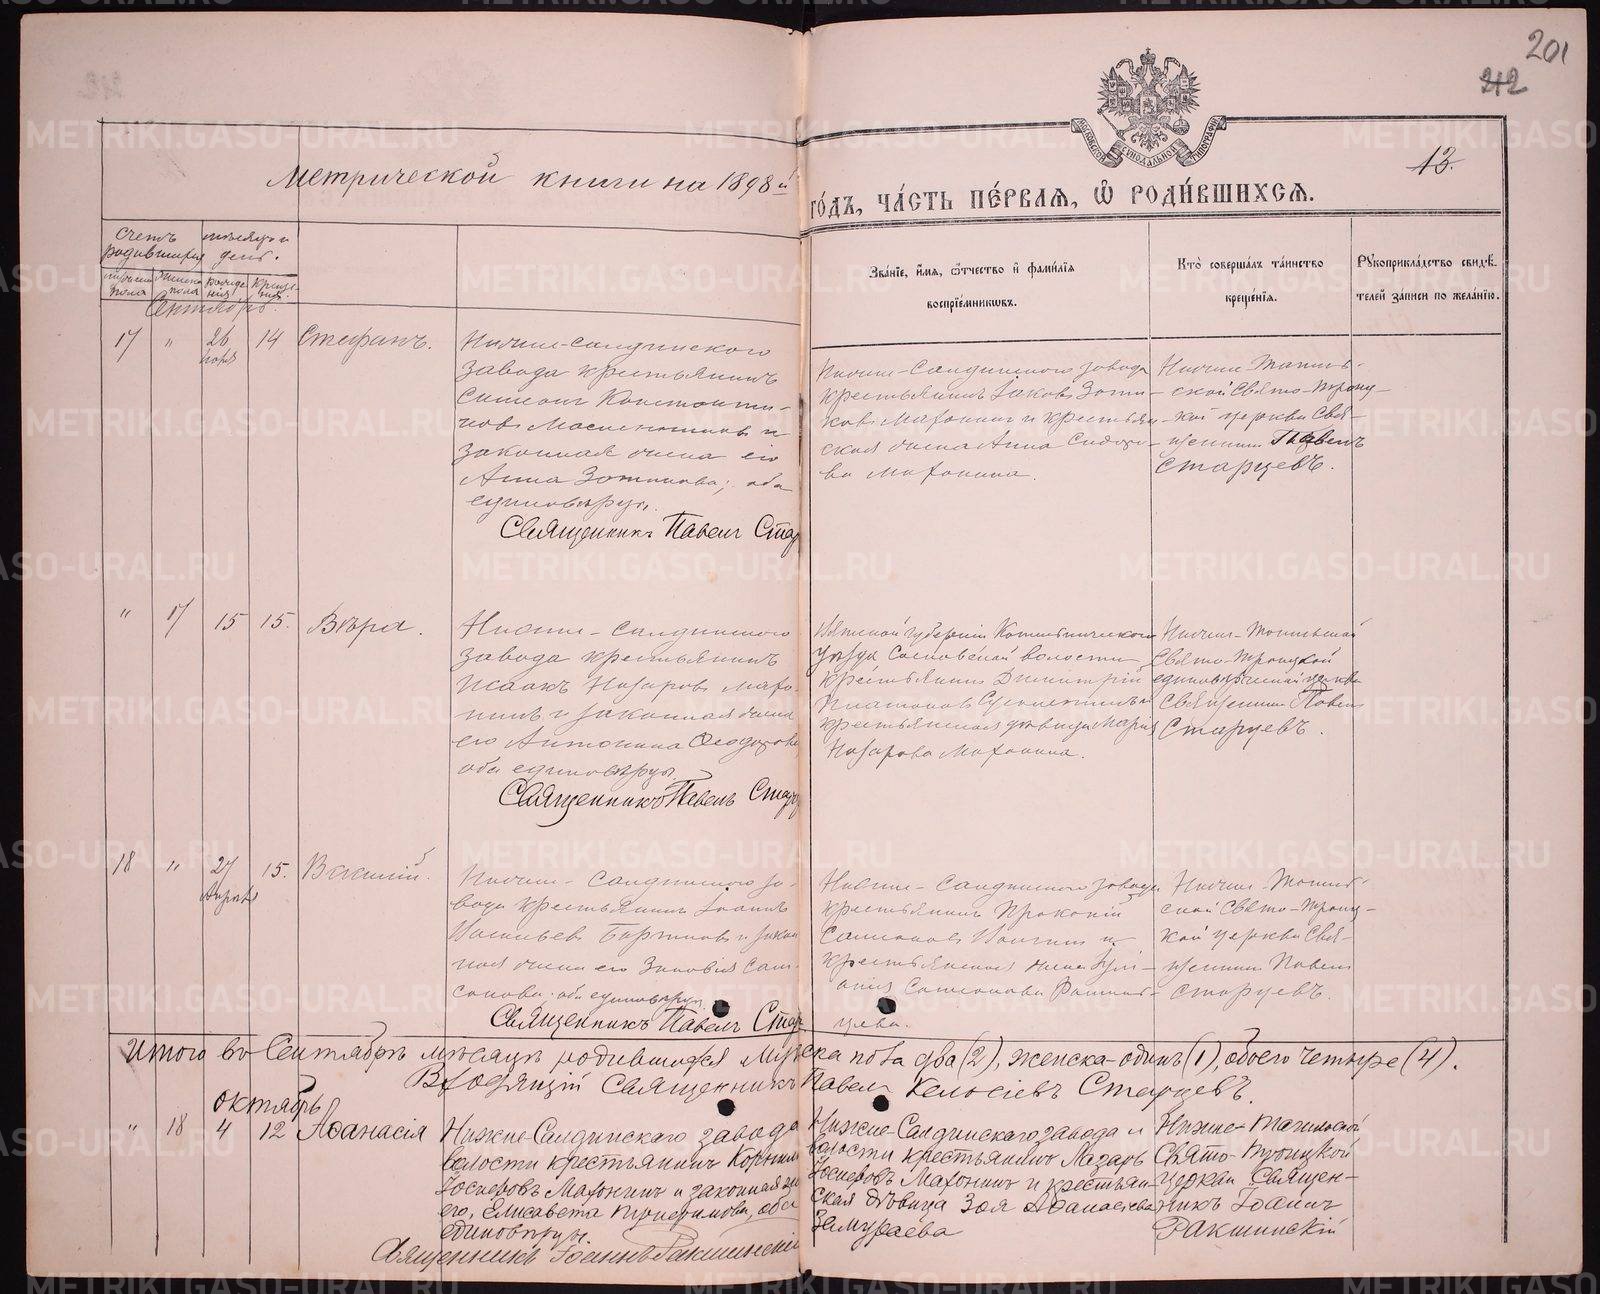 201
212
13.
МОСКОВСКОЙ СѴНОДАЛЬНОЙ ТИПОГРАФІИ
Метрической книги на 1898й го́дъ, ча́сть пе́рвая, ѡ҆ роди́вшихся.
Счетъ родившихся
мѣсяцъ и день.
Мужеска пола
Женска пола
рожденія
крещенія.
Зва́нїе, и҆́мѧ, ѻ҆́тчество и҆ фами́лїѧ воспрїе́мникѡвъ.
Кто̀ соверша́лъ та́инство креще́нїѧ.
Рꙋкоприкла́дство свидѣ́телей за́писи по жела́нїю.
Сентябрь.
17
"
26
14
Стефанъ.
Нижне-Салдинского
завода крестьянинъ
Симеонъ Константи-
новъ Масленниковъ и
законная жена его
Анна Зотикова; оба
единовѣрцы.
Священникъ Павелъ Стар
Нижне-Салдинского завода
крестьянинъ Іаковъ Зоти-
ковъ Махонинъ и крестьян-
ская жена Анна Сидоро-
ва Махонина.
Нижне-Тагиль-
ской Свято-Троиц-
кой церкви Свя-
щенникъ Павелъ
Старцевъ.
"
17
15
15.
Вѣра.
Нижне-Салдинского
завода крестьянинъ
Исаакъ Назаровъ Махо-
нинъ и законная жена
его Антонина Ѳеодорова,
оба единовѣрцы.
Священникъ Павелъ Старц
Вятской губерніи Котельнического
уѣзда Сосновской волости
крестьянинъ Димитрій
Платоновъ
крестьянская дѣвица Марія
Назарова Махонина.
Нижне-Тагильской
Свято-Троицкой
единовѣрческой церкви
Священникъ Павелъ
Старцевъ.
18
"
27
Апрѣля
15.
Василій.
Нижне-Салдинского за-
вода крестьянинъ Іоаннъ
Васильевъ и закон
ная жена его Зиновія Сам-
сонова; оба единовѣрцы.
Священникъ Павелъ Стар
Нижне-Салдинского завода
крестьянинъ Прокопій
Самсоновъ и
крестьянская жена
Самсонова
цева.
Нижне-Тагиль-
ской Свято-Троиц-
кой церкви Свя-
щенникъ Павелъ
Старцевъ.
Итого въ Сентябрѣ мѣсяцѣ родившихся мужеска пола два (2), женска-одинъ (1), обоего четыре (4).
Входящій Священникъ Павелъ Старцевъ.
октябрь
"
18
4
12
Аѳанасія
Нижне-Салдинскаго завода
волости крестьянинъ Корнилій
Іосифовъ Махонинъ и законная же
его, Елисавета Трифонова, оба
единовѣрцы.
Священникъ Іоаннъ Ракшинскій
Нижне-Салдинскаго завода и
волости крестьянинъ Лазарь
Іосифовъ Махонинъ и крестьян-
ская дѣвица Зоя Аѳанасіева
Замураева
Нижне-Тагильской
Свято-Троицкой
церкви Священ-
никъ Іоаннъ
Ракшинскій
METRIKI.GASO-URAL.RU